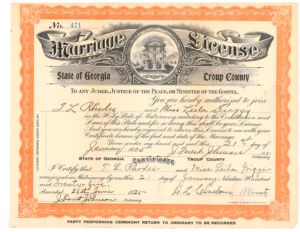 No. 471
Marriage License
State of Georgia
Troup County
TO ANY JUDGE, JUSTICE OF THE PEACE, OR MINISTER OF THE GOSPEL.
You are hereby authorized to join
T L Rhodes and Miss Leila
in the Holy State of Matrimony according to the Constitution and
Laws of this State and for so doing this shall be your license
And you are hereby required to return this License to me with your
Certificate hereon of the fact and date of the Marriage.
Given under my hand and seal this 21st
January 1925
STATE OF GEORGIA Certificate TROUP COUNTY
I Certify that T. L. Rhodes and Miss Leila
were joined in Matrimony by me this 21 day of January Nineteen Hundred
and twenty five
Recorded 1925
PARTY PERFORMING CEREMONY RETURN TO ORDINARY TO BE RECORDED